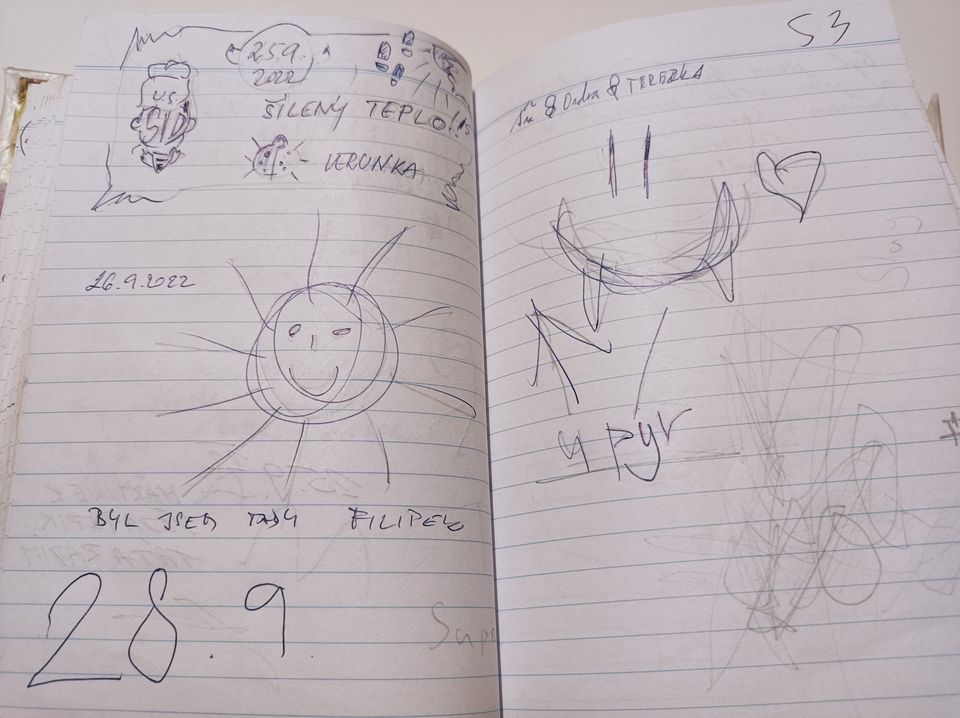 25.9.
2022
U.S.
SID
ŠÍLENÝ TEPLO!!
VERUNKA
26.9.2022
BYL JSEM TADY FILIPEK
28.9.
Supe
53
& Ondra & TEREZKA
upyr